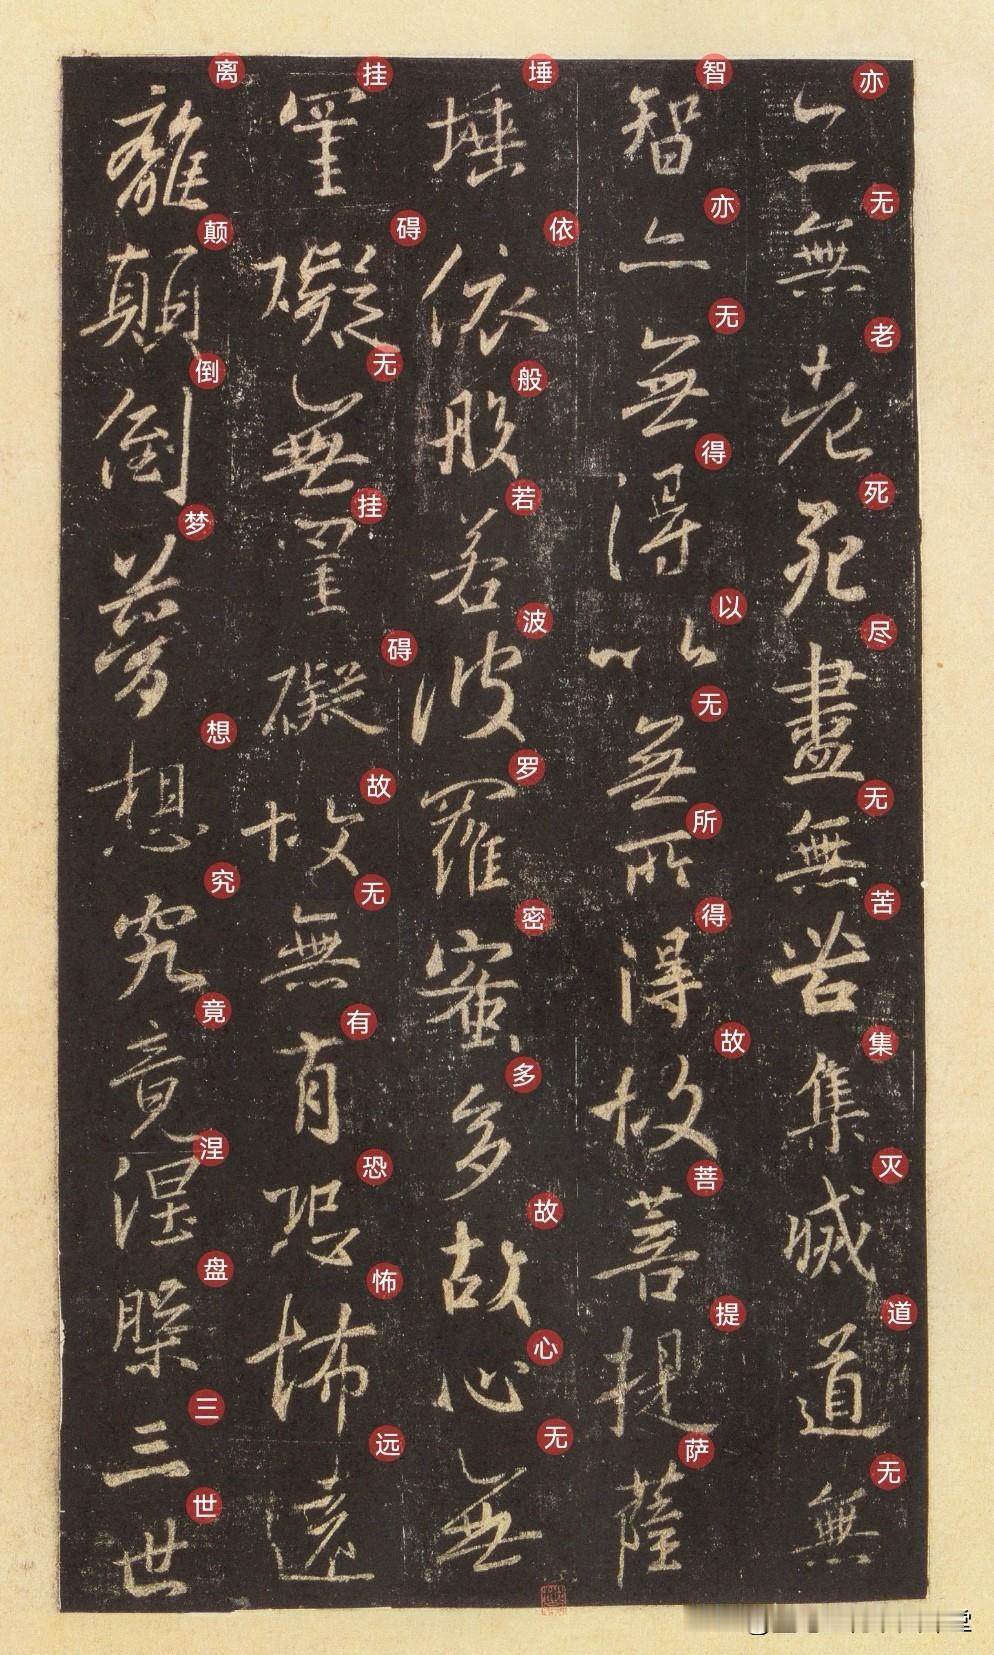 亦无老死尽无苦集灭道无
亦無老死盡無苦集滅道無
智亦无得以无所得故菩提萨
智亦無得以無所得故菩提薩
埵依般若波罗密多故心无
埵依般若波羅蜜多故心無
挂碍无挂碍故无有恐怖远
罣礙無罣礙故無有恐怖遠
离颠倒梦想究竟涅盘三世
離顛倒夢想究竟涅槃三世